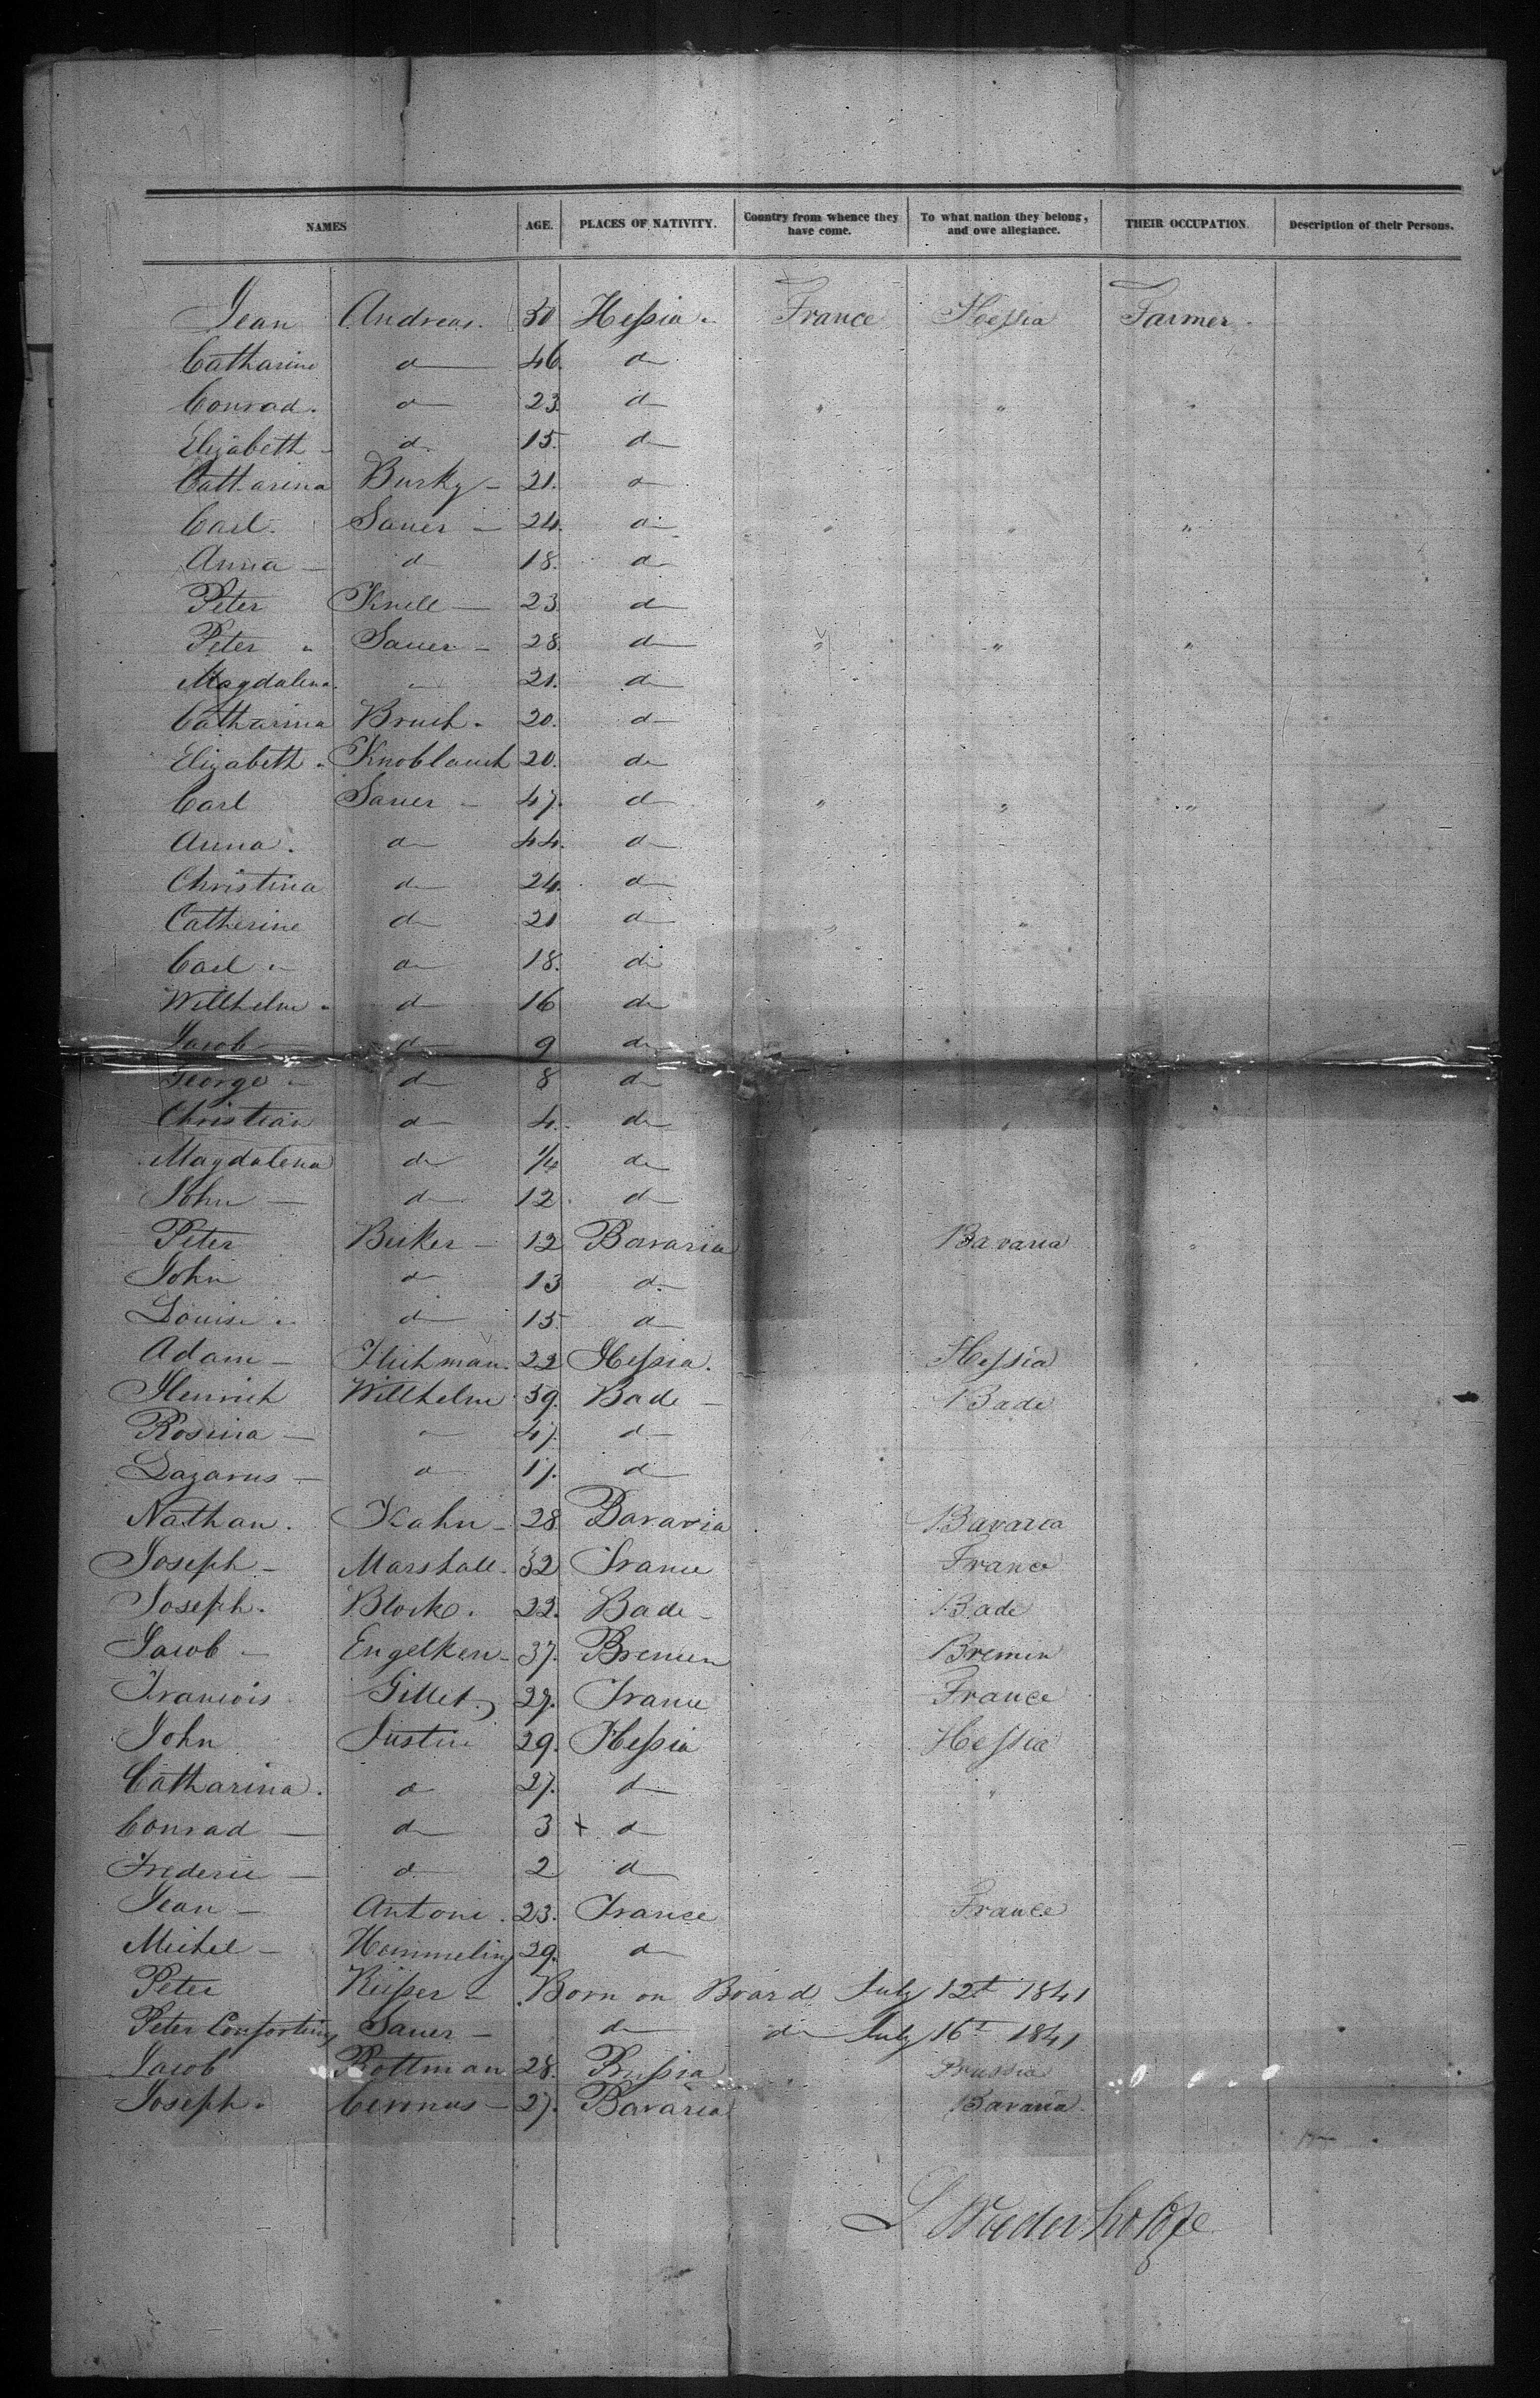 NAMES AGE. PLACES OF NATIVITY. Country from whence they have come. To what nation they belong, and owe allegiance. THEIR OCCUPATION. Description of their Persons.
Jean Andreas. 50 Hessia. France Hessia Farmer.
Catharine d 46. d
Conrad. d 23. d " " "
Elizabeth d 15. d
Catharina Burky 21. d
Carl. Sauer 24. d " " "
Anna d 18. d
Peter Knell 23. d
Peter Sauer 28. d " " "
Magdalena " 21. d
Catharina Bruch. 20. d
Elizabeth Knoblauch 20. d
Carl Sauer 47. d " " "
Anna. d 44. d
Christina d 24. d
Catherine d 21 d " "
Carl d 18. d
Willhelm d 16 d
Jacob d 9 d
George d 8 d
Christian d 4. d
Magdalena d 1/4 d
John d 12. d
Peter Becker 12 Bavaria Bavaria "
John d 13 d
Louise d 15. d
Adam 22 Hessia. Hessia
Henrich Willhelm 59. Bade Bade
Rosina " 47. d
Lazarus d 17. d
Nathan. Kahn 28 Bavaria Bavaria
Joseph Marshall. 32 France France
Joseph. Block. 22. Bade Bade
Jacob Engelken 37. Bremen Bremen
Francois Gillet 27. France France
John Justin 29. Hessia Hessia
Catharina. d 27. d "
Conrad d 3 + d
Frederic d 2 d
Jean Antoni. 23. France France
Michel Hemmeling 29. d
Peter Born on Board July 12t 1841
Peter Sauer d d July 16t 1841
Jacob Rottman 28. Prussia Prussia
Joseph. 27. Bavaria Bavaria.